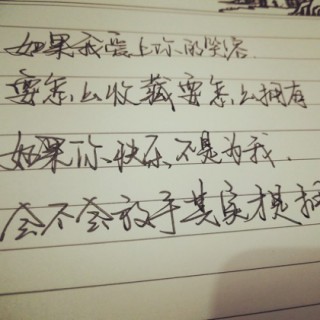 如果我爱上你的笑容.
要怎么收藏要怎么拥有
如果你快乐不是为我.
会不会放手其实才是拥